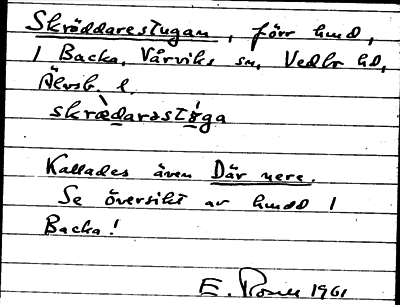 Skräddarestugan, förr hmd,
1 Backa, Vårviks sn, Vedbo hd,
Älvsb. l.
skrædarəstøga
Kallades även Där nere.
Se översikt av hmdd 1
Backa!
E. Rosén 1961